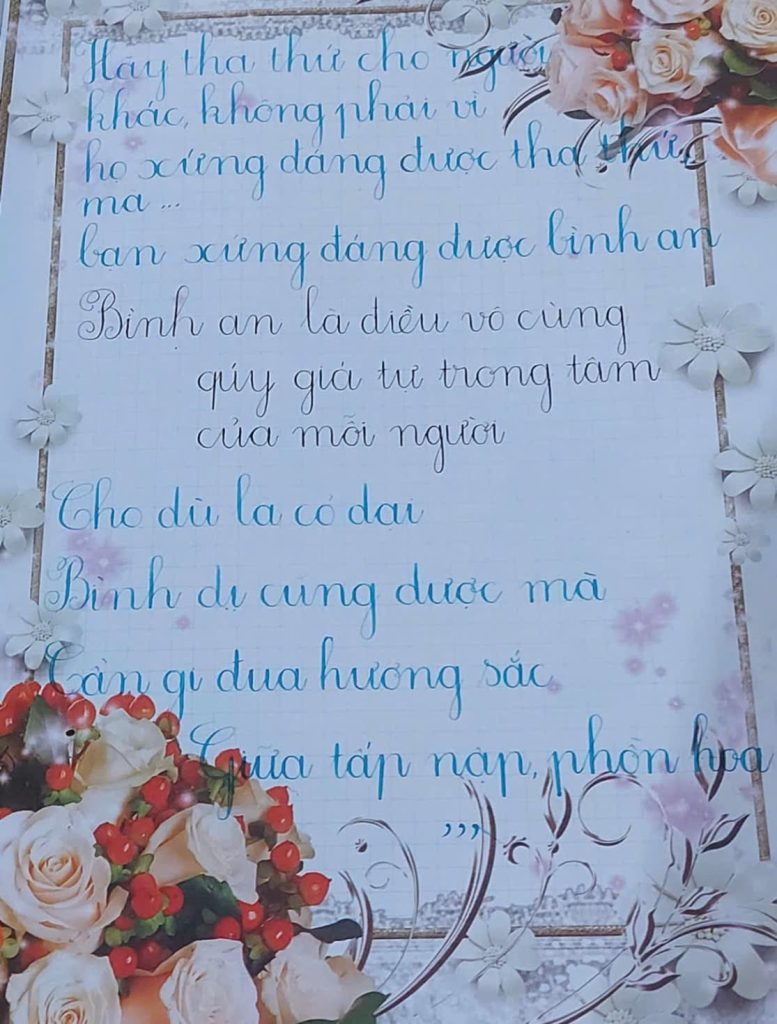 Hãy tha thứ cho người
khác, không phải vì
họ xứng đáng được tha thứ,
mà ...
bạn xứng đáng được bình an
Bình an là điều vô cùng
qúy giá tự trong tâm
của mỗi người
Cho dù la cỏ dại
Bình dị cũng được mà
Cần gì đua hương sắc
Giữa tấp nập, phồn hoa
,,,